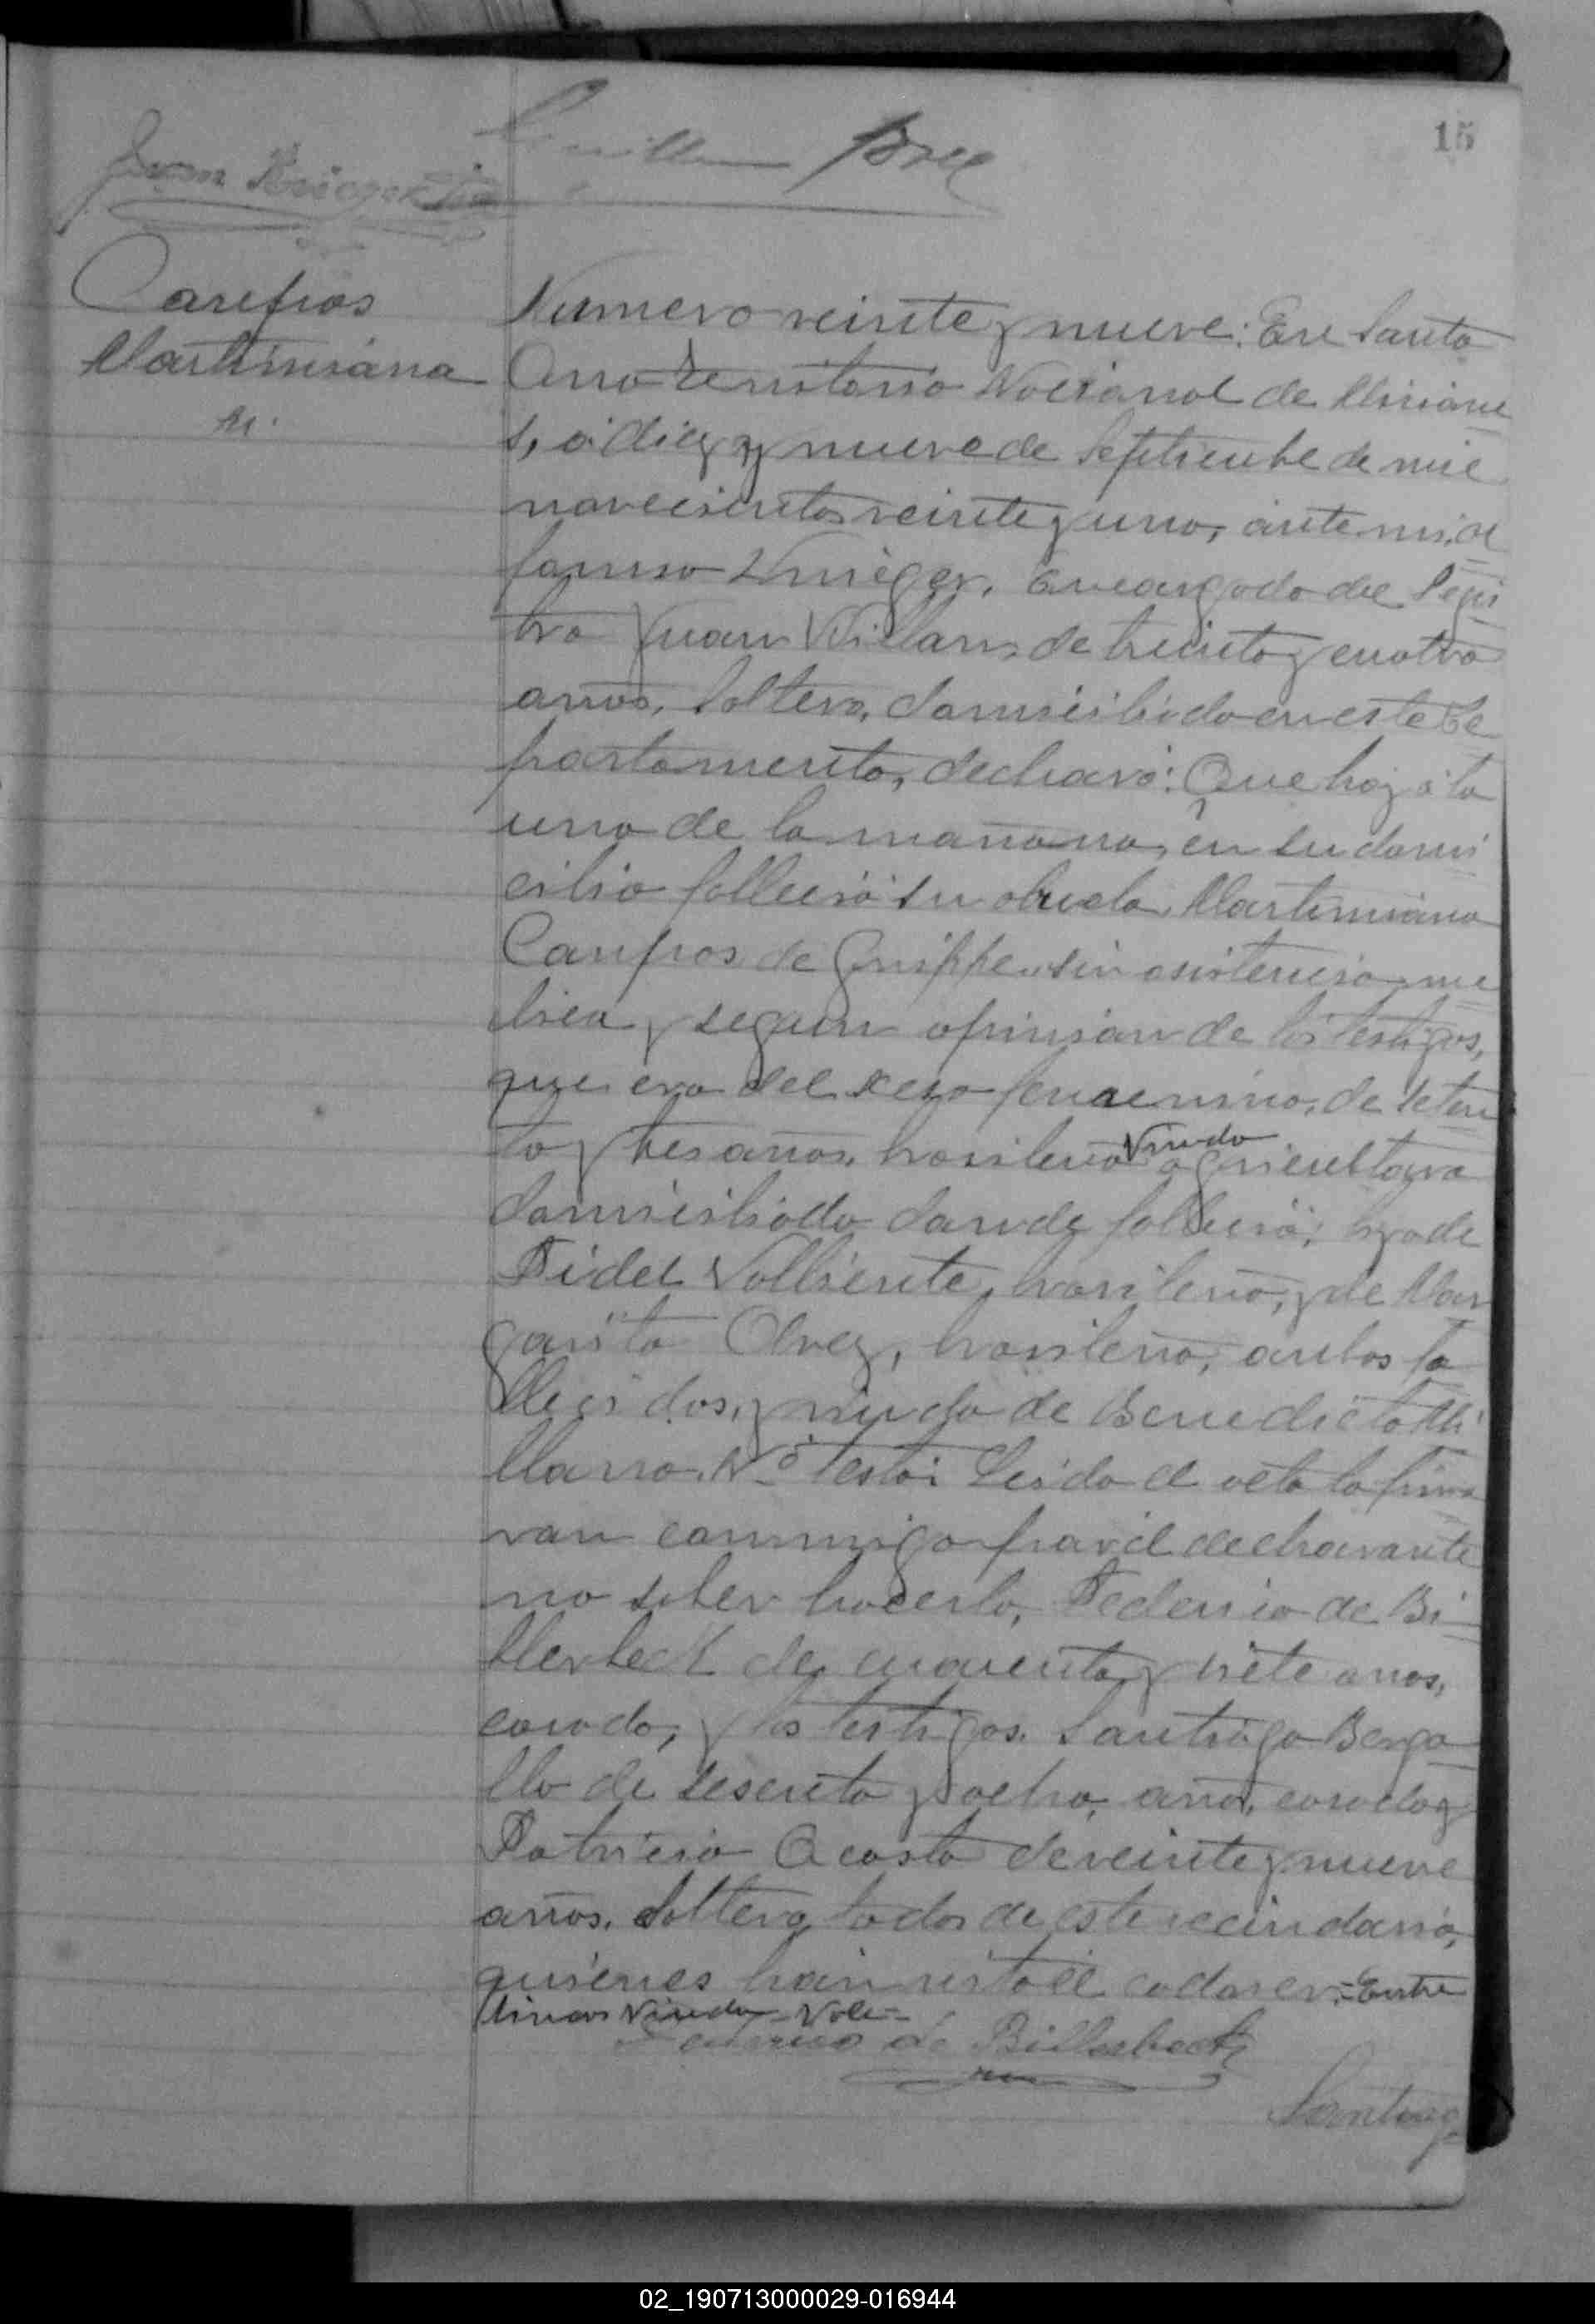 15
Juan Krieger
Campos
Martimiana
Numero veinte y nueve: En Santa
Ana Territorio Nacional de Misione
s, á diez y nueve de Septiembre de mil
novecientos veinte y uno, ante mi, Al
fonso Krieger, Encargado del Regis
tro Juan Villan, de treinta y cuatro
años, Soltero, domiciliado en este De
partamento, declaró: Que hoy á la
una de la mañana, en su domi
cilio falleció su abuela Martimiana
Campos de Grippe, sin asistencia me
dica y segun opinion de los testigos,
que era del sexo femenino, de seten
ta y tres años, brasileña Viuda agricultora
domiciliada donde falleció; hija de
Fidel Valliente, brasileño, y de Mar
garita Olvez, brasileña, ambos fa
llecidos, y viuda de Benedicto Mi
llano. Nó testó: Leida el acta la firma
ran conmigo por el declarante
no saber hacerlo, Federico de Bi
llerbeck de cuarenta y siete años,
casado, y los testigos. Santiago Berga
llo de sesenta y ocho, años, casado y
Patricio Acosta de veinte y nueve
años, Soltero, todos de este vecindario,
quienes han visto el cadaver.=Entre
lineas Viuda - Vale =
Federico de Billerbeck
Santiago
02_190713000029-016944